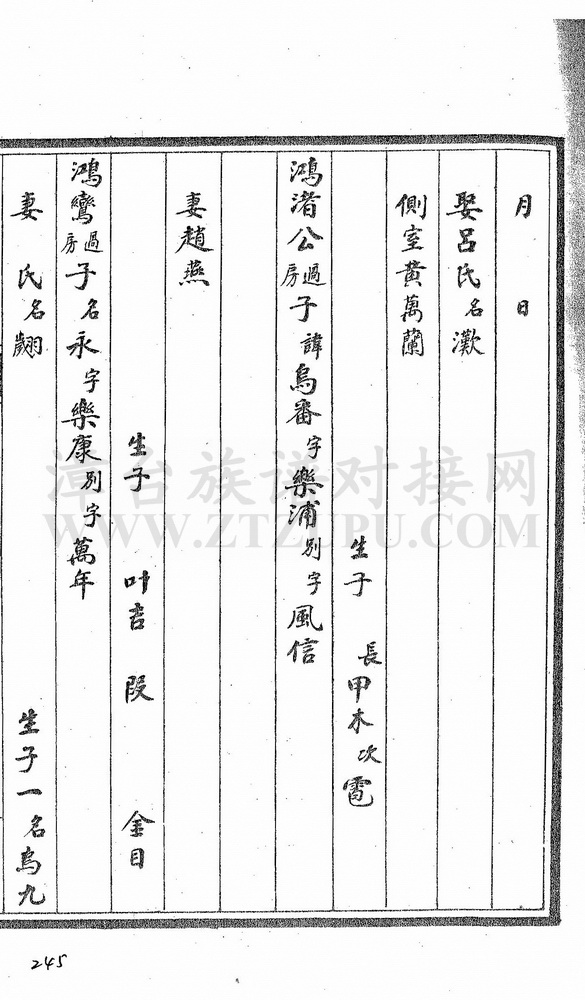 月 日
娶呂氏名灝
側室黃萬蘭
生子 長甲木 次雹
鴻渚公過房子諱烏番字樂浦別字風信
妻趙燕
生子 叶吉 段 金目
鴻鸞過房子名永字樂康別字萬年
妻 氏名翽 生子一名烏九
漳台族谱对接网
WWW.ZTZUPU.COM
245